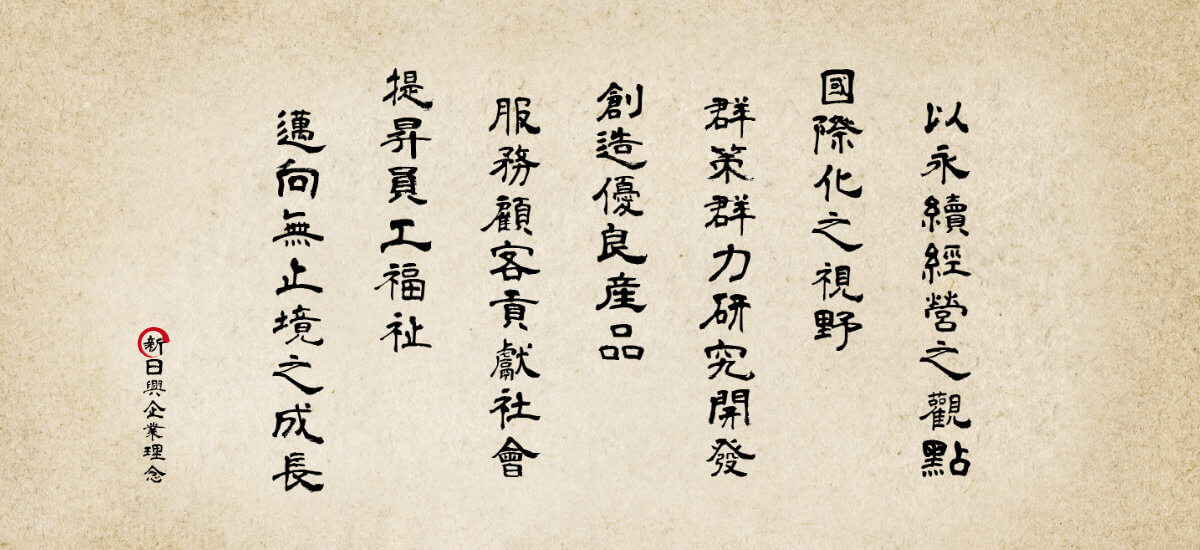 以永續經營之觀點
國際化之視野
群策群力研究開發
創造優良產品
服務顧客貢獻社會
提昇員工福祉
邁向無止境之成長
新日興企業理念